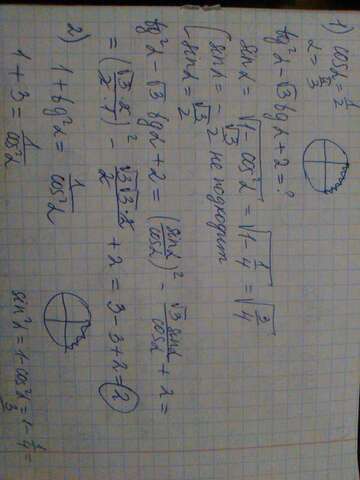 1) cosα = 1/2
α = π/3
tg²α - √3 tgα + 2 = ?
sinα = √(1 - cos²α) = √(1 - 1/4) = √(3/4)
[ sinα = - √3/2 не подходит
[ sinα = √3/2
tg²α - √3 tgα + 2 = (sinα/cosα)² - √3 sinα/cosα + 2 =
= (√3·2/2·1)² - √3√3·2/2 + 2 = 3 - 3 + 2 = 2
2) 1 + tg²α = 1/cos²α
1 + 3 = 1/cos²α
sin²α = 1 - cos²α = 1 - 1/4 =